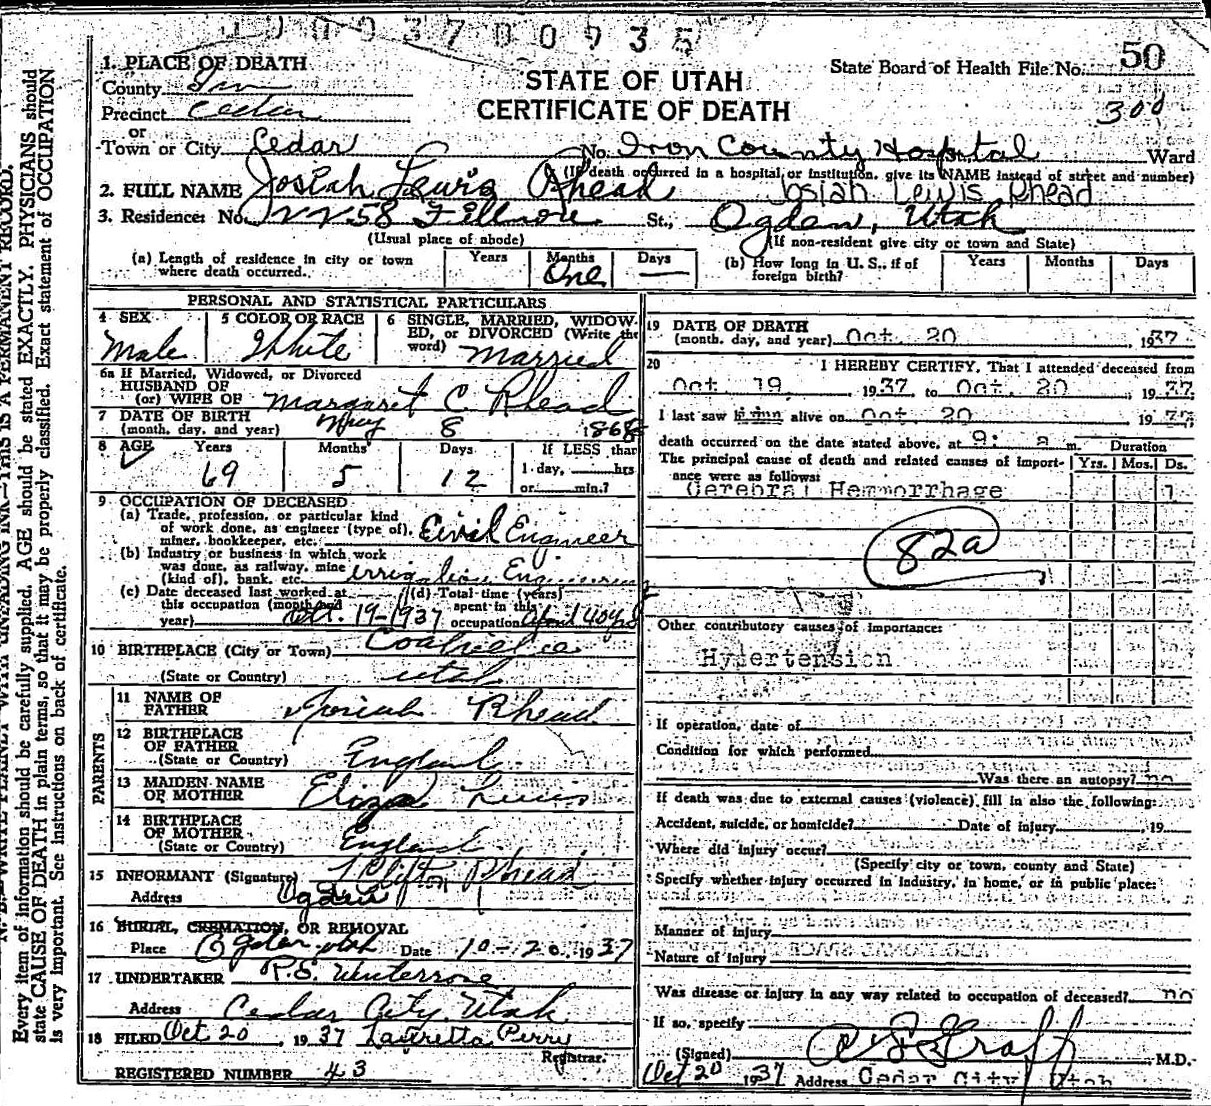 1003700935
1. PLACE OF DEATH
STATE OF UTAH
CERTIFICATE OF DEATH
State Board of Health File No. 50
300
County Iron
Precinct Cedar
or
Town or City Cedar No. Iron County Hospital Ward
(If death occurred in a hospital or institution, give its NAME instead of street and number)
2. FULL NAME Josiah Lewis Rhead Josiah Lewis Rhead
3. Residence: No. 2258 Fillmore St., Ogden, Utah
(Usual place of abode) (If non-resident give city or town and State)
(a) Length of residence in city or town where death occurred. Years Months One Days —
(b) How long in U. S., if of foreign birth? Years Months Days
PERSONAL AND STATISTICAL PARTICULARS
4 SEX Male
5 COLOR OR RACE White
6 SINGLE, MARRIED, WIDOWED, or DIVORCED (Write the word) Married
6a If Married, Widowed, or Divorced
HUSBAND OF
(or) WIFE OF Margaret C. Rhead
7 DATE OF BIRTH
(month, day, and year) May 8 1868
8 AGE Years 69 Months 5 Days 12
If LESS than 1 day, hrs or min.?
9 OCCUPATION OF DECEASED
(a) Trade, profession, or particular kind of work done, as engineer (type of), miner, bookkeeper, etc. Civil Engineer
(b) Industry or business in which work was done, as railway, mine (kind of), bank, etc. Irrigation Engineering
(c) Date deceased last worked at this occupation (month and year) Oct. 19-1937
(d) Total time (years) spent in this occupation 40 yrs
10 BIRTHPLACE (City or Town) Coalville
(State or Country) Utah
PARENTS
11 NAME OF FATHER Josiah Rhead
12 BIRTHPLACE OF FATHER
(State or Country) England
13 MAIDEN NAME OF MOTHER Eliza Lewis
14 BIRTHPLACE OF MOTHER
(State or Country) England
15 INFORMANT (Signature) Clifton Rhead
Address Ogden
16 BURIAL, CREMATION, OR REMOVAL
Place Ogden, Utah Date 10-20, 1937
17 UNDERTAKER
Address Cedar City, Utah
18 FILED Oct 20, 1937 Lauretta Perry
Registrar.
REGISTERED NUMBER 43
19 DATE OF DEATH
(month, day, and year) Oct. 20, 1937
20 I HEREBY CERTIFY, That I attended deceased from
Oct. 19, 1937, to Oct. 20, 1937
I last saw him alive on Oct 20 1937
death occurred on the date stated above, at 9: a m.
The principal cause of death and related causes of importance were as follows:
Duration
Yrs. Mos. Ds.
Cerebral Hemorrhage 1
82a
Other contributory causes of importance:
Hypertension
If operation, date of
Condition for which performed
Was there an autopsy? no
If death was due to external causes (violence), fill in also the following:
Accident, suicide, or homicide? Date of injury, 19
Where did injury occur?
(Specify city or town, county and State)
Specify whether injury occurred in industry, in home, or in public place:
Manner of injury
Nature of injury
Was disease or injury in any way related to occupation of deceased? no
If so, specify
(Signed) Graff M.D.
Oct 20 1937 Address Cedar City, Utah
Every item of information should be carefully supplied. AGE should be stated EXACTLY. PHYSICIANS should
state CAUSE OF DEATH in plain terms, so that it may be properly classified. Exact statement of OCCUPATION
is very important. See instructions on back of certificate.